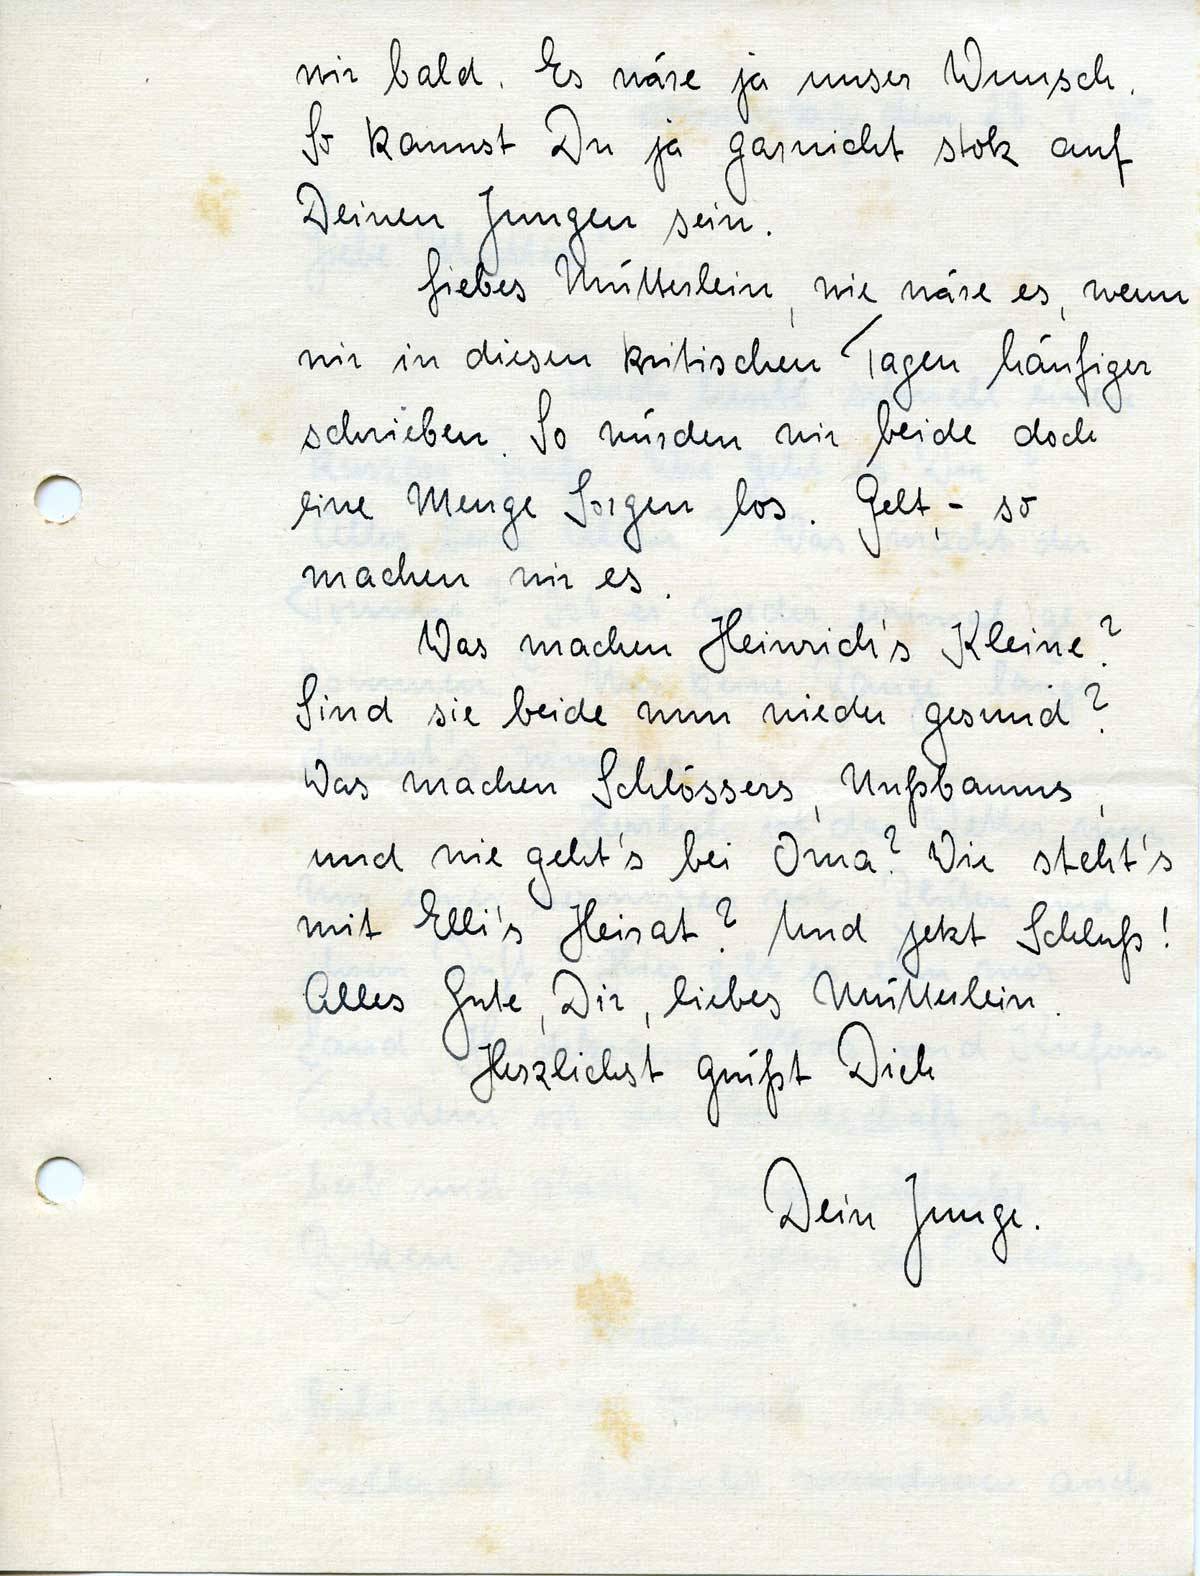 wir bald. Es wäre ja unser Wunsch.
So kannst Du ja garnicht stolz auf
Deinen Jungen sein.
Liebes Mütterlein, wie wäre es, wenn
wir in diesen kritischen Tagen häufiger
schrieben. So würden wir beide doch
eine Menge Sorgen los. Gelt, - so
machen wir es.
Was machen Heinrich's Kleine?
Sind sie beide nun wieder gesund?
Was machen Schlössers, Nußbaums,
und wie geht's bei Oma? Wie steht's
mit Elli's Heirat? Und jetzt Schluß!
Alles Gute, Dir, liebes Mütterlein.
Herzlichst grüßt Dich
Dein Junge.